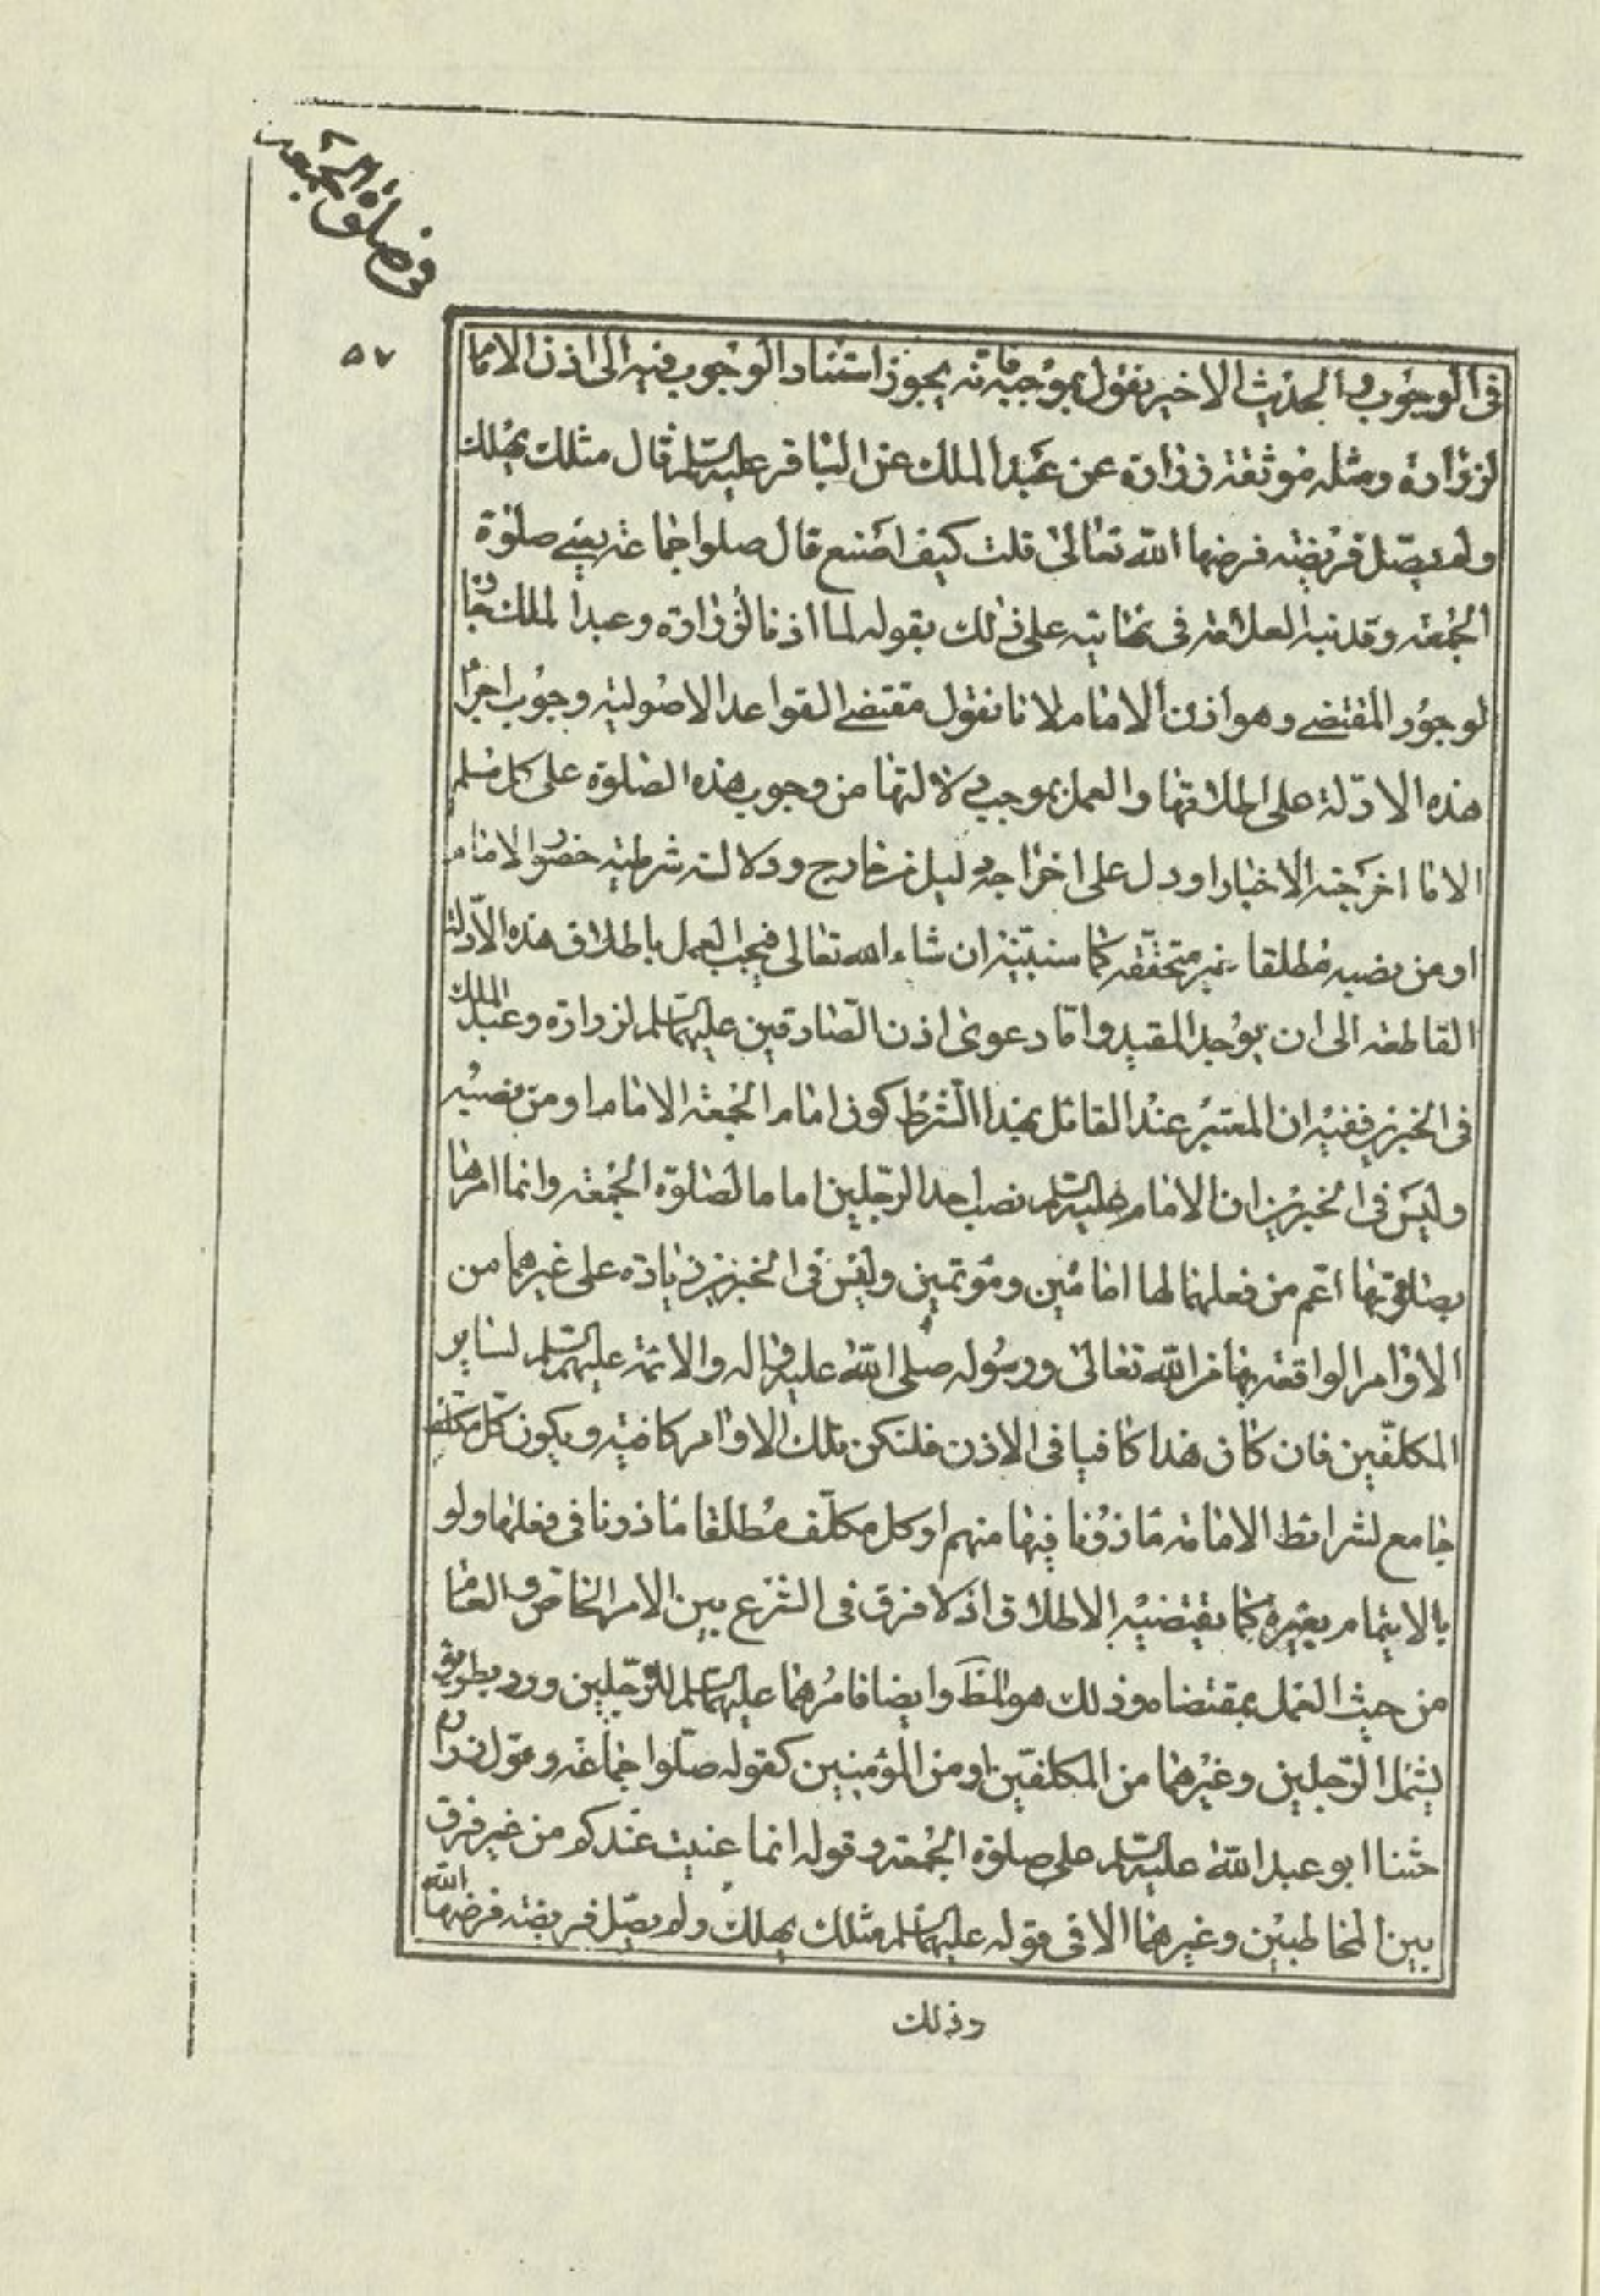 في صلوة الجمعة
٥٧
في الوجوب والحديث الاخير نقول بموجبه فانه يجوز استناد الوجوب فيه الى اذن الامام
لزرارة ومثله موثقة زرارة عن عبد الملك عن الباقر عليه السلم قال مثلك يهلك
ولم يصل فريضة فرضها الله تعالى قلت كيف اصنع قال صلوا جماعة يعني صلوة
الجمعة وقد نبه العلامة في نهايته على ذلك بقوله لما اذنا لزرارة وعبد الملك جاز
لوجود المقتضي وهو اذن الامام لانا نقول مقتضى القواعد الاصولية وجوب اجراء
هذه الادلة على اطلاقها والعمل بموجب دلالتها من وجوب هذه الصلوة على كل مسلم
الا ما اخرجته الاخبار او دل على اخراجه دليل من خارج ودلالة شرطية حضور الامام
او من نصبه مطلقا غير متحققة كما سنبينه ان شاء الله تعالى فيجب العمل باطلاق هذه الادلة
القاطعة الى ان يوجد المقيد واما دعوى اذن الصادقين عليهما السلم لزرارة وعبد الملك
في الخبرين ففيه ان المعتبر عند القائل بهذا الشرط كون امام الجمعة الامام او من نصبه
وليس في الخبرين ان الامام عليه السلم نصب احد الرجلين اماما لصلوة الجمعة وانما امرهما
بصلوتها اعم من فعلهما لها امامين ومؤتمين وليس في الخبرين زيادة على غيرهما من
الاوامر الواقعة بها من الله تعالى ورسوله صلى الله عليه واله والائمة عليهم السلم لساير
المكلفين فان كان هذا كافيا في الاذن فلتكن تلك الاوامر كافية ويكون كل مكلف
جامع لشرائط الامامة ماذونا فيها منهم او كل مكلف مطلقا ماذونا في فعلها ولو
بالايتمام بغيره كما يقتضيه الاطلاق اذ لا فرق في الشرع بين الامر الخاص والعام
من حيث العمل بمقتضاه وذلك هو المط وايضا فامرهما عليهما السلم للرجلين ورد بطريق
يشمل الرجلين وغيرهما من المكلفين او من المؤمنين كقوله صلوا جماعة وقول زرارة
حثنا ابو عبد الله عليه السلم على صلوة الجمعة وقوله انما عنيت عندكم من غير فرق
بين المخاطبين وغيرهما الا في قوله عليه السلم مثلك يهلك ولم يصل فريضة فرضها الله
وذلك